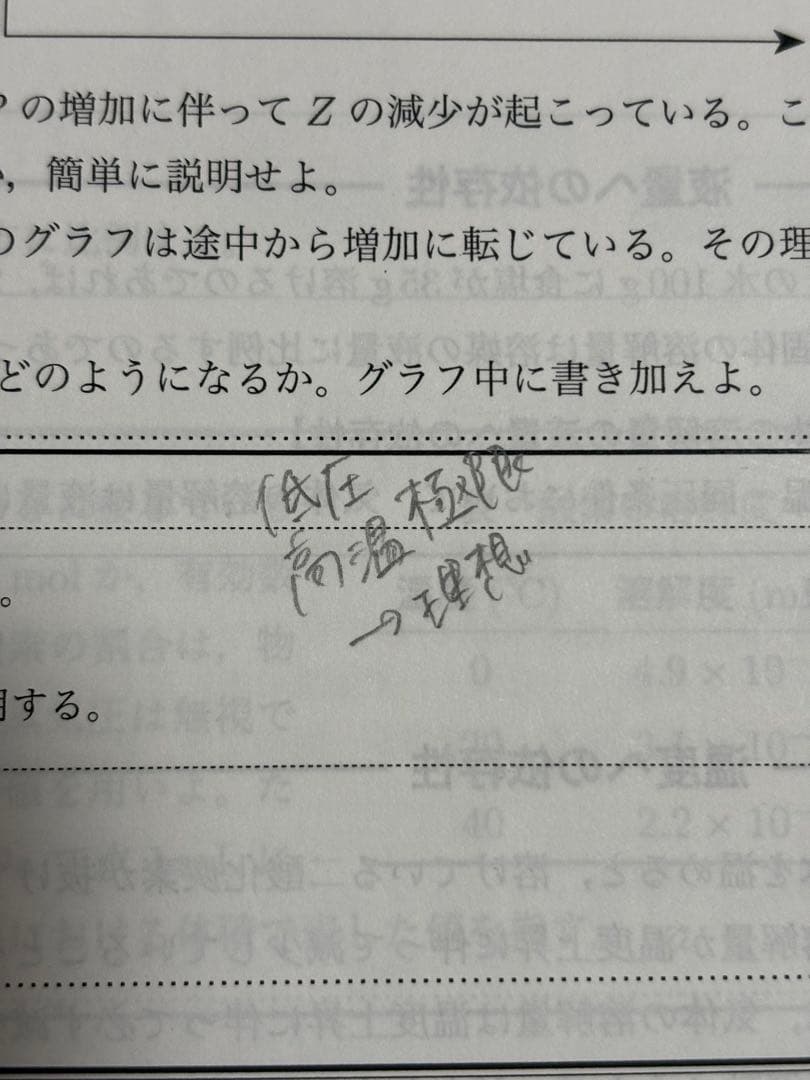 の増加に伴って Z の減少が起こっている。こ
，簡単に説明せよ。
のグラフは途中から増加に転じている。その理
どのようになるか。グラフ中に書き加えよ。
低圧
高温 極限
→理想
。
用する。